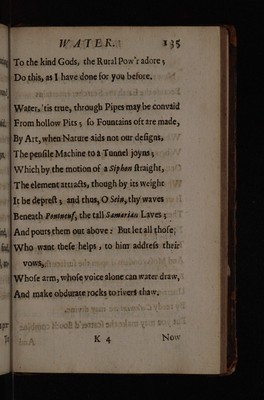 WATER. 135
To the kind Gods, the Rural Pow'rs adore;
Do this, as I have done for you before.
Water, 'tis true, through Pipes may be convaid
From hollow Pits; so Fountains oft are made,
By Art, when Nature aids not our designs,
The pensile Machine to a Tunnel joyns;
Which by the motion of a Siphon straight,
The element attracts, though by its weight
It be deprest; and thus, O Sein, thy waves
Beneath Pontneuf, the tall Samarian Laves;
And pours them out above: But let all those,
Who want these helps, to him address their
vows,
Whose arm, whose voice alone can water draw,
And make obdurate rocks to rivers thaw.
K 4 Now